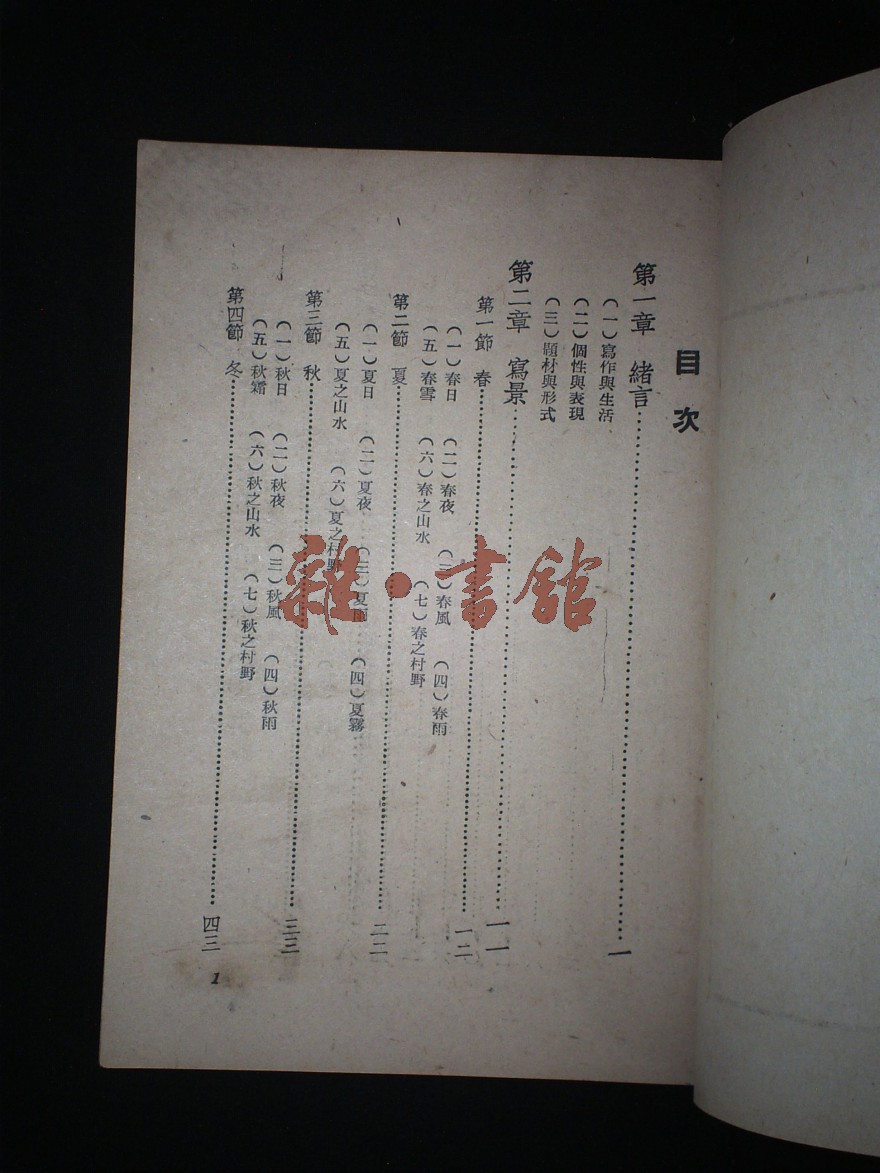 目次
第一章 緒言……一
(一)寫作與生活
(二)個性與表現
(三)題材與形式
第二章 寫景……一一
第一節 春……一二
(一)春日 (二)春夜 (三)春風 (四)春雨
(五)春雪 (六)春之山水 (七)春之村野
第二節 夏……二二
(一)夏日 (二)夏夜 (三)夏雨 (四)夏霧
(五)夏之山水 (六)夏之村野
第三節 秋……三三
(一)秋日 (二)秋夜 (三)秋風 (四)秋雨
(五)秋霜 (六)秋之山水 (七)秋之村野
第四節 冬……四三
1
雜·書館